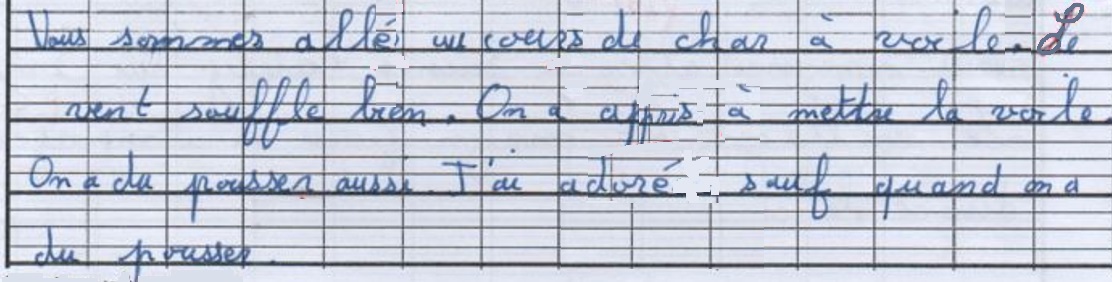 Nous sommes allé au cours de char à voile. Le
vent souffle bien. On a appris à mettre la voile.
On a du pousser aussi. J'ai adoré sauf quand on a
du pousser.